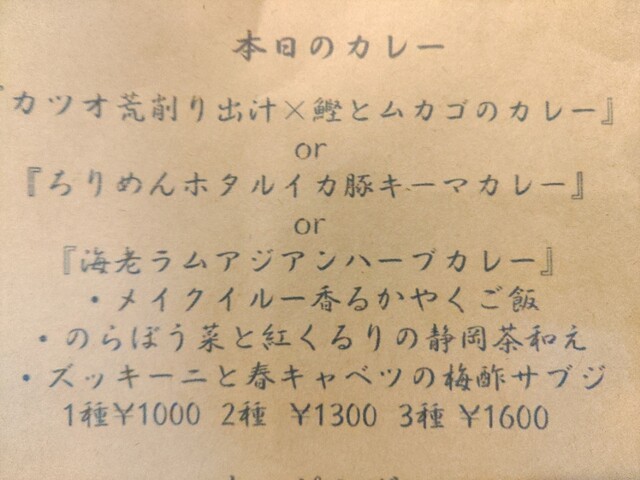 本日のカレー
『カツオ荒削り出汁×鰹とムカゴのカレー』
or
『ろりめんホタルイカ豚キーマカレー』
or
『海老ラムアジアンハーブカレー』
・メイクイルー香るかやくご飯
・のらぼう菜と紅くるりの静岡茶和え
・ズッキーニと春キャベツの梅酢サブジ
1種¥1000 2種 ¥1300 3種 ¥1600